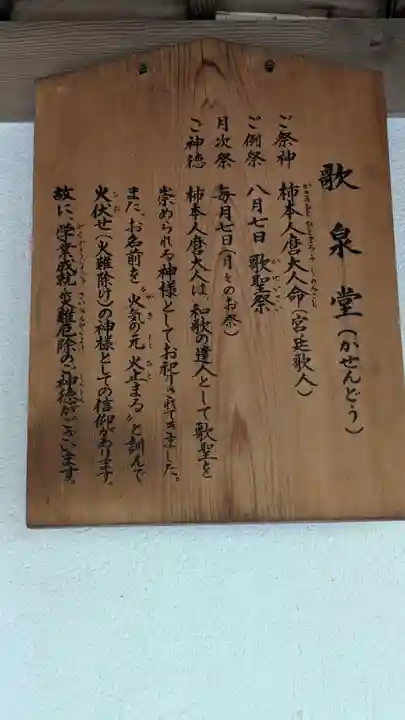 歌泉堂(かせんどう)
ご祭神 柿本人麿大人命(宮廷歌人)
ご例祭 八月七日 歌聖祭
月次祭 毎月七日(月毎のお祭)
ご神徳 柿本人麿大人は、和歌の達人として歌聖を
崇められる神様としてお祀りされて来ました。
また、お名前を〝火気の元 火止まる〟と訓んで
火伏せ(火難除け)の神様としての信仰があります。
故に、学業成就、災難危除のご神徳がございます。